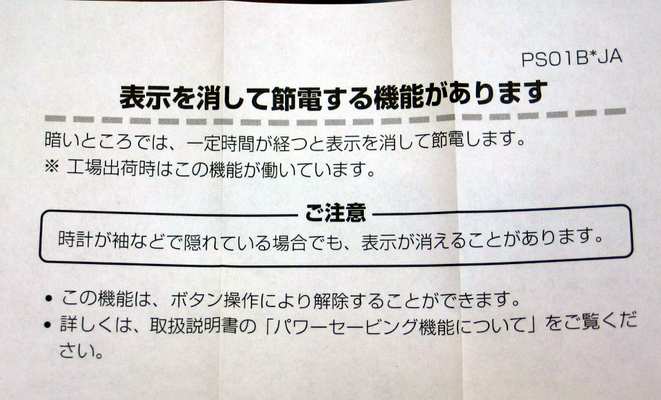 PS01B*JA
表示を消して節電する機能があります
暗いところでは、一定時間が経つと表示を消して節電します。
※ 工場出荷時はこの機能が働いています。
ご注意
時計が袖などで隠れている場合でも、表示が消えることがあります。
• この機能は、ボタン操作により解除することができます。
• 詳しくは、取扱説明書の「パワーセービング機能について」をご覧くだ
さい。